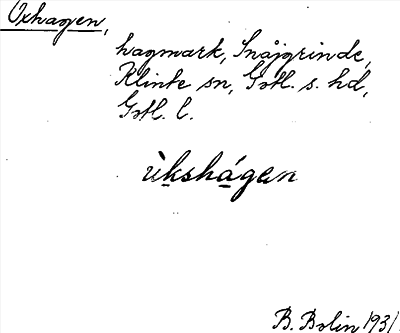 Oxhagen,
hagmark, Snäjgrinde,
Klinte sn, Gotl. s. hd,
Gotl. l.
ùkshágen
B. Bolin 1931